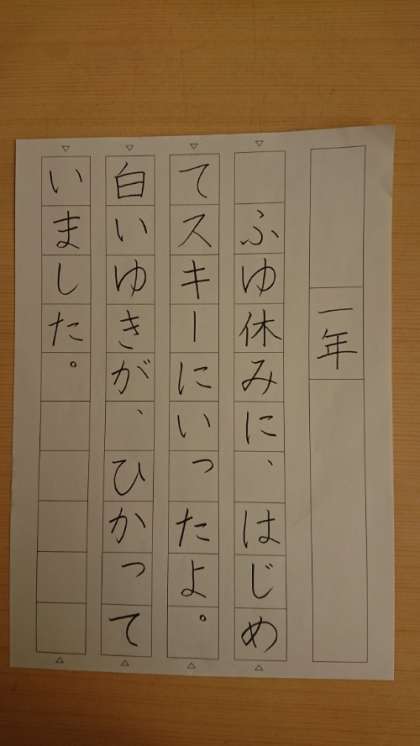 一年
ふゆ休みに、はじめ
てスキーにいったよ。
白いゆきが、ひかって
いました。